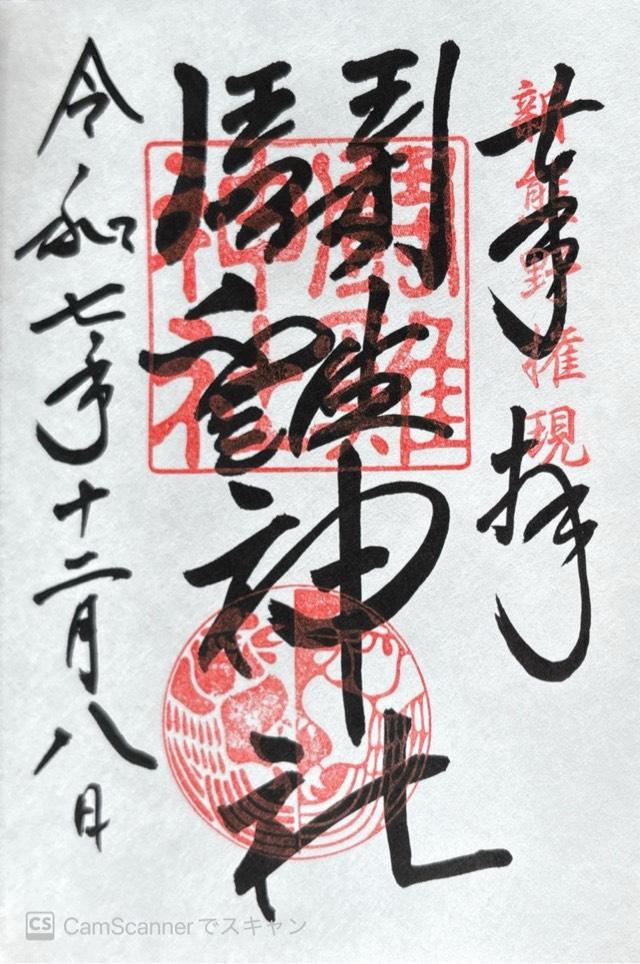 奉拝
新熊野権現
鬪雞神社
鬪雞
神社
令和七年十二月八日
CS CamScannerでスキャン